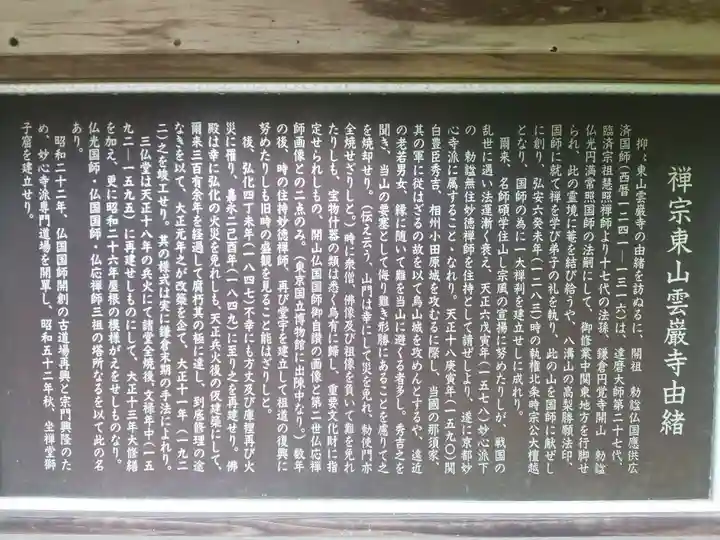 禅宗東山雲巌寺由緒
抑〻東山雲巌寺の由緒を訪ぬるに、開祖 勅諡仏国應供広
済国師(西暦一二四一ー一三一六)は、達磨大師第二十七代、
臨済宗祖慧照禅師より十七代の法孫、鎌倉円覚寺開山 勅諡
仏光円満常照国師の法嗣にして、御修業中関東地方を行脚せ
られ、此の霊境に菴を結び給うや、八溝山の高梨勝願法印、
国師に就て禅を学び弟子の礼を執り、此の山を国師に献ぜし
に創り、弘安六癸未年(一二八三)時の執権北条時宗公大檀越
となり、国師の為に一大禅刹を建立せしに成れり。
爾来、名師碩学住山し宗風の宣揚に努めたりしが、戦国の
乱世に遇い法運漸く衰え、天正六戊寅年(一五七八)妙心派下
の 勅諡無住妙徳禅師を住持として請ぜしより、遂に京都妙
心寺派に属すること丶なれり。天正十八庚寅年(一五九〇)関
白豊臣秀吉、相州小田原城を攻むるに際し、当國の那須家、
其の軍に從はざるの故を以て烏山城を攻めんとするや、遠近
の老若男女、縁に随いて難を当山に避くる者多し。秀吉之を
聞き、当山の要塞として侮り難き形勝にあることを慮りて之
を焼却せり。(伝え云う、山門は幸にして災を免れ、勅使門亦
全焼せざりしと。)時に衆僧、佛像及び祖像を負いて難を免れ
たりしも、宝物什器の類は悉く烏有に歸し、重要文化財に指
定せられしもの、開山仏国国師御自讃の画像と第二世仏応禅
師画像との二点のみ。(東京国立博物館に出陳中なり。)数年
の後、時の住持妙徳禅師、再び堂宇を建立して祖道の復興に
努めたりしも旧時の盛観を見ること能はざりしと。
後、弘化四丁未年(一八四七)不幸にも方丈及び庫裡再び火
災に罹り、嘉永二己酉年(一八四九)に至り之を再建せり。佛
殿は幸に弘化の火災を免れしも、天正兵火後の仮建築にして、
爾来三百有余年を経過して腐朽其の極に達し、到底修理の途
なきを以て、大正元年之が改築を企て、大正十一年(一九二
二)之を竣工せり。其の様式は実に鎌倉末期の手法によれり。
三仏堂は天正十八年の兵火にて諸堂全焼後、文禄年中(一五
九二ー一五九五)に再建せしものにして、大正十三年大修繕
を加え、更に昭和二十六年屋根の模様がえをせしものなり。
仏光国師・仏国国師・仏応禅師三祖の塔所なるを以て此の名
あり。
昭和二十二年、仏国国師開創の古道場再興と宗門興隆のた
め、妙心寺派専門道場を開單し、昭和五十二年秋、坐禅堂獅
子窟を建立せり。